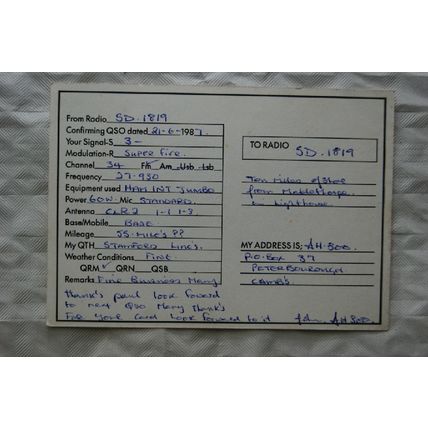 From Radio SD.1819
Confirming QSO dated 21-6-1987.
Your Signal-S 3-
Modulation-R Supre Fine.
Channel 34 Fm Am Usb Lsb
Frequency 27-930
Equipment used HAM INT JUMBO
Power 60W. Mic STANDARD.
Antenna 1-1 1-3
Base/Mobile BASE
Mileage 55-Mile's PP
My QTH STAMFORD LINCS.
Weather Conditions Fine.
QRM QRN QSB
Remarks Fine Business Many
thank's paul look Foward
to next QSO Many thank's
For your Card Look Forward to it John AH 500.
TO RADIO SD.1819
Ten miles ofshoe
from Mablethorpe
in Lighthouse
MY ADDRESS IS; AH-500
P.O-BOX 37
PETERBOUROUGH
CAMBS